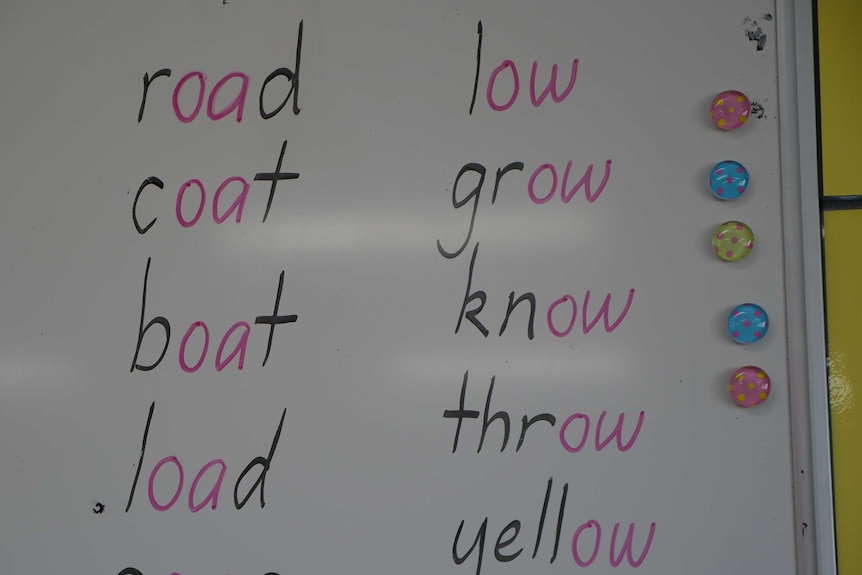 road low
coat grow
boat know
load throw
yellow